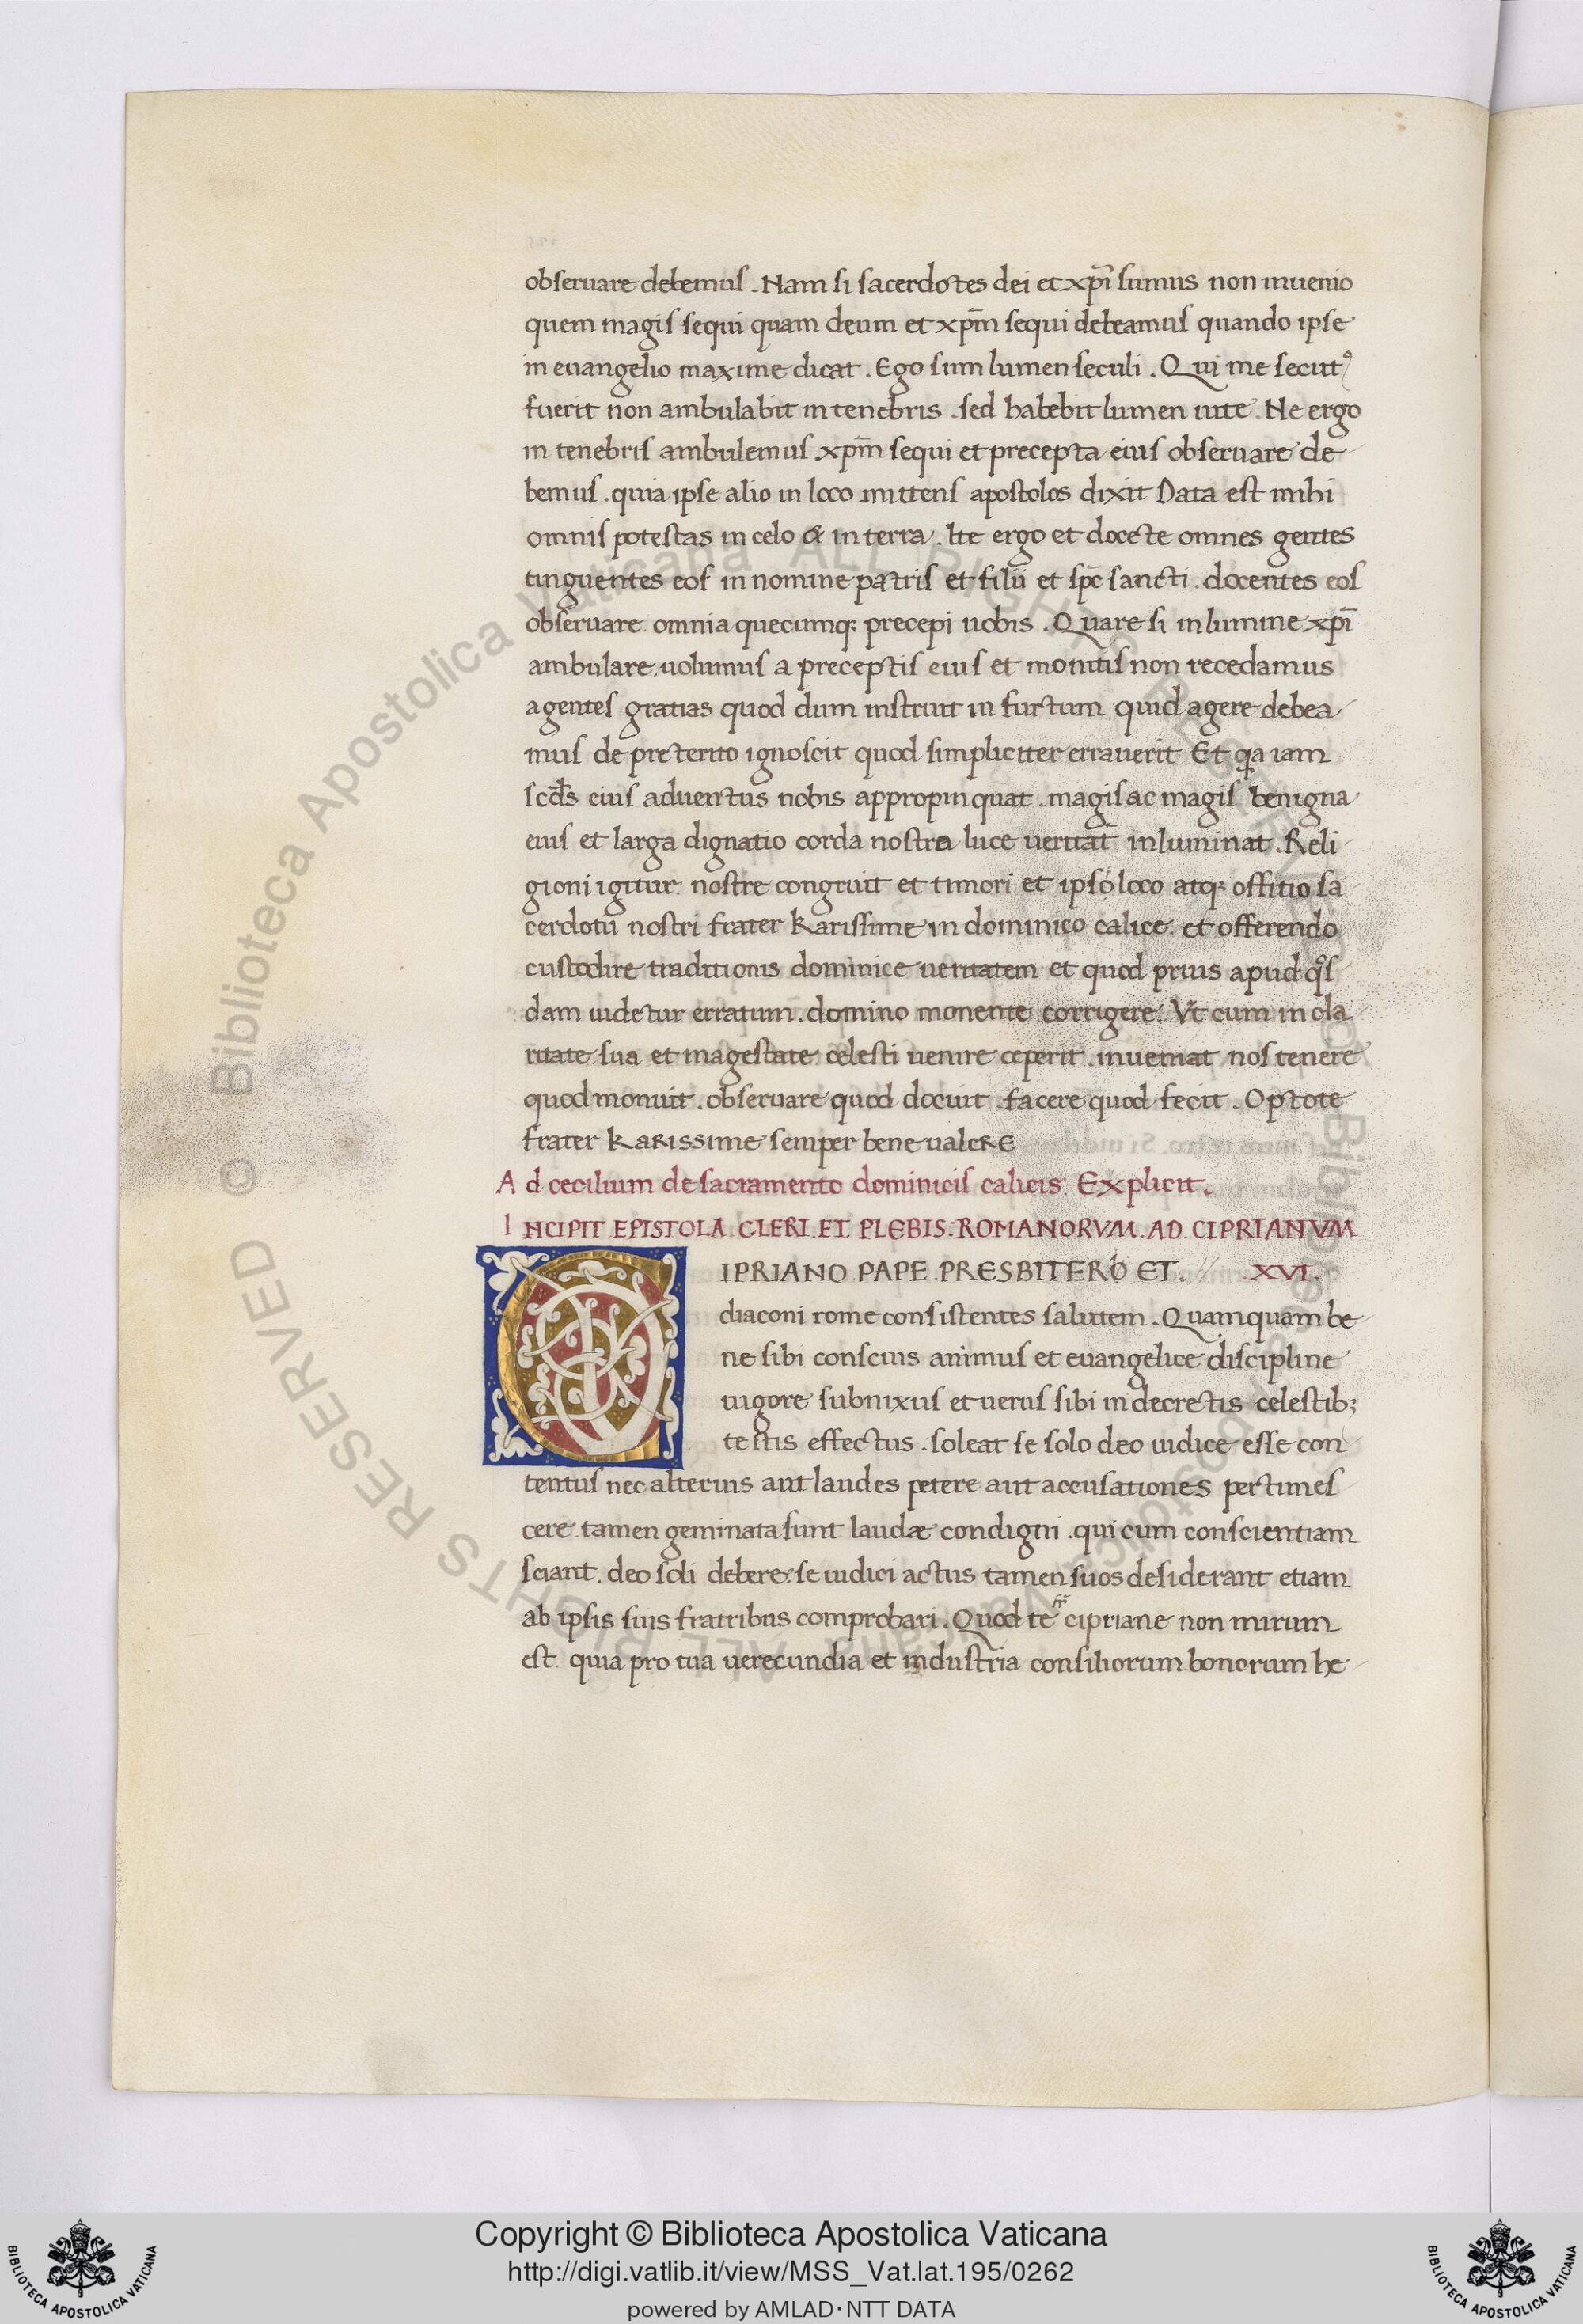 obseruare debemus . Nam si sacerdotes dei et xp̄i sumus non inuenio
quem magis sequi quam deum et xp̄m sequi debeamus quando ipse
in euangelio maxime dicat . Ego sum lumen seculi . Qui me secutꝰ
fuerit non ambulabit in tenebris . sed habebit lumen uite . Ne ergo
in tenebris ambulemus xp̄m sequi et precepta eius obseruare de
bemus . quia ipse alio in loco mittens apostolos dixit Data est mihi
omnis potestas in celo & in terra . Ite ergo et docete omnes gentes
tinguentes eos in nomine patris et filii et sp̄c sancti . docentes eos
obseruare omnia quecumq; precepi uobis . Quare si in lumine xp̄i
ambulare uolumus a preceptis eius et monitis non recedamus
agentes gratias quod dum instruit in furtum quid agere debea
mus de preterito ignoscit quod simpliciter errauerit Et qa iam
scd̄s eius aduentus nobis appropinquat . magis ac magis benigna
eius et larga dignatio corda nostra luce ueritat̄ inluminat . Reli
gioni igitur nostre congruit et timori et ipso loco atq; offitio sa
cerdotū nostri frater karissime in dominico calice et offerendo
custodire traditionis dominice ueritatem et quod prius apud qͦs
dam uidetur erratum . domino monente corrigere . Vt cum in cla
ritate sua et magestate celesti uenire ceperit . inueniat nos tenere
quod monuit . obseruare quod docuit . facere quod fecit . Opto te
frater karissime semper bene ualere
Ad cecilium de sacramento dominicis calicis Explicit .
INCIPIT EPISTOLA CLERI ET PLEBIS ROMANORVM AD CIPRIANVM
CIPRIANO PAPE PRESBITERO ET . XVI .
diaconi rome consistentes salutem . Quamquam be
ne sibi conscius animus et euangelice discipline
uigore subnixus et uerus sibi in decretis celestib;
testis effectus . soleat se solo deo iudice esse con
tentus nec alterius aut laudes petere aut accusationes pertimes
cere tamen geminata sunt laudæ condigni . qui cum conscientiam
sciant deo soli debere se iudici actus tamen suos desiderant etiam
ab ipsis suis fratribus comprobari . Quod te fr̄ cipriane non mirum
est quia pro tua uerecundia et industria consiliorum bonorum he
© Biblioteca Apostolica Vaticana ALL RIGHTS RESERVED
Copyright © Biblioteca Apostolica Vaticana
http://digi.vatlib.it/view/MSS_Vat.lat.195/0262
powered by AMLAD·NTT DATA
BIBLIOTECA APOSTOLICA VATICANA
BIBLIOTECA APOSTOLICA VATICANA